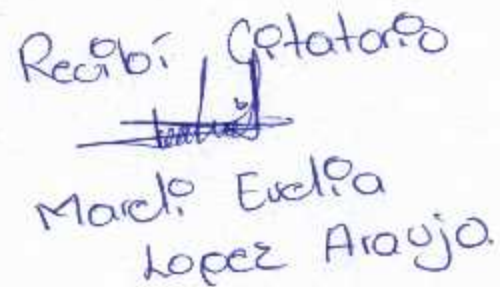 Recibí Citatorio
Mareli Evelia
Lopez Araujo.